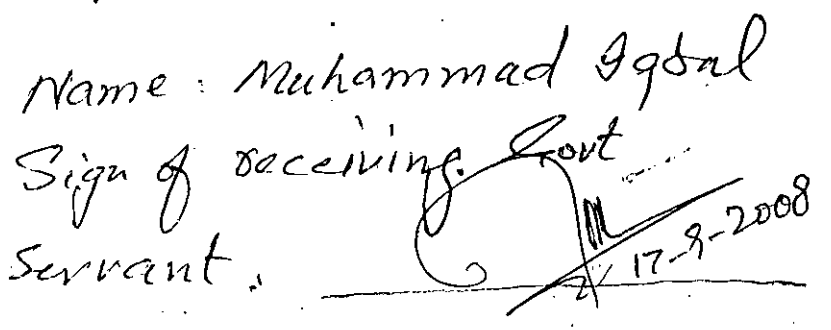 Name: Muhammad Iqbal
Sign of receiving Govt
Servant.
17-9-2008